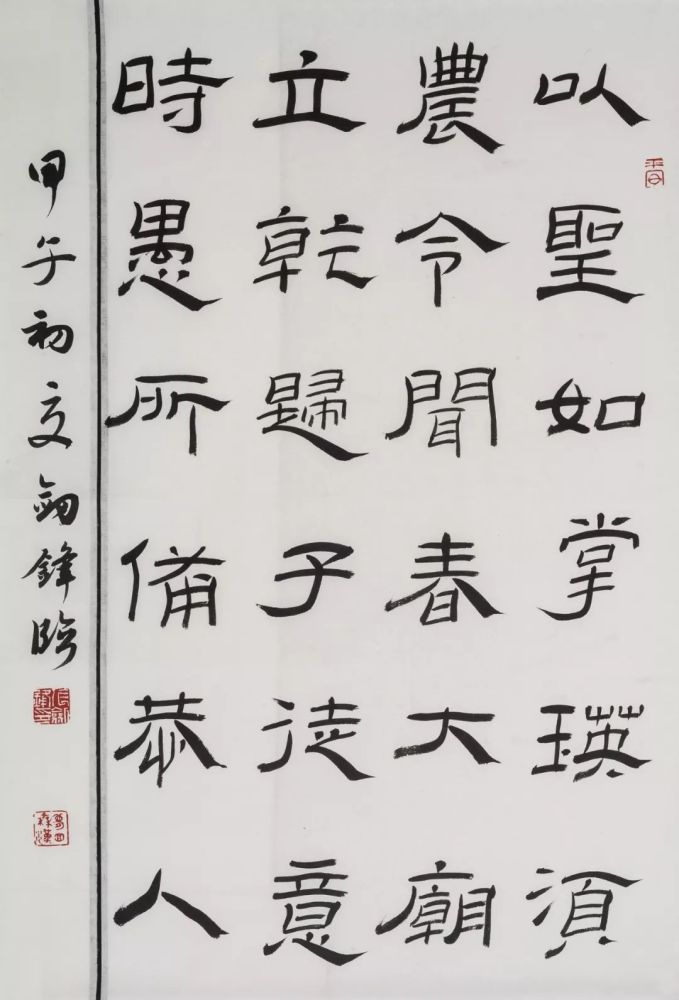 以聖如掌瑛須
農令聞春大廟
立乾歸子徒意
時愚所備恭人
甲午初文劒鋒臨